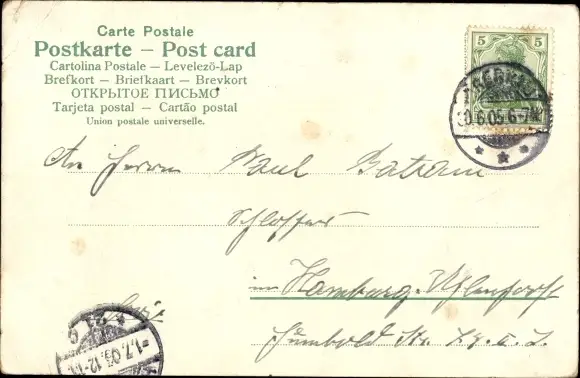 Carte Postale
Postkarte – Post card
Cartolina Postale – Levelező-Lap
Brefkort – Briefkaart – Brevkort
ОТКРЫТОЕ ПИСЬМО
Tarjeta postal – Cartão postal
Union postale universelle.
5 5
30.6.05 6-7N.
An Herrn Paul
Schlosser
in Hamburg-Uhlenhorst
Humboldt Str.
1.7.05.12-1